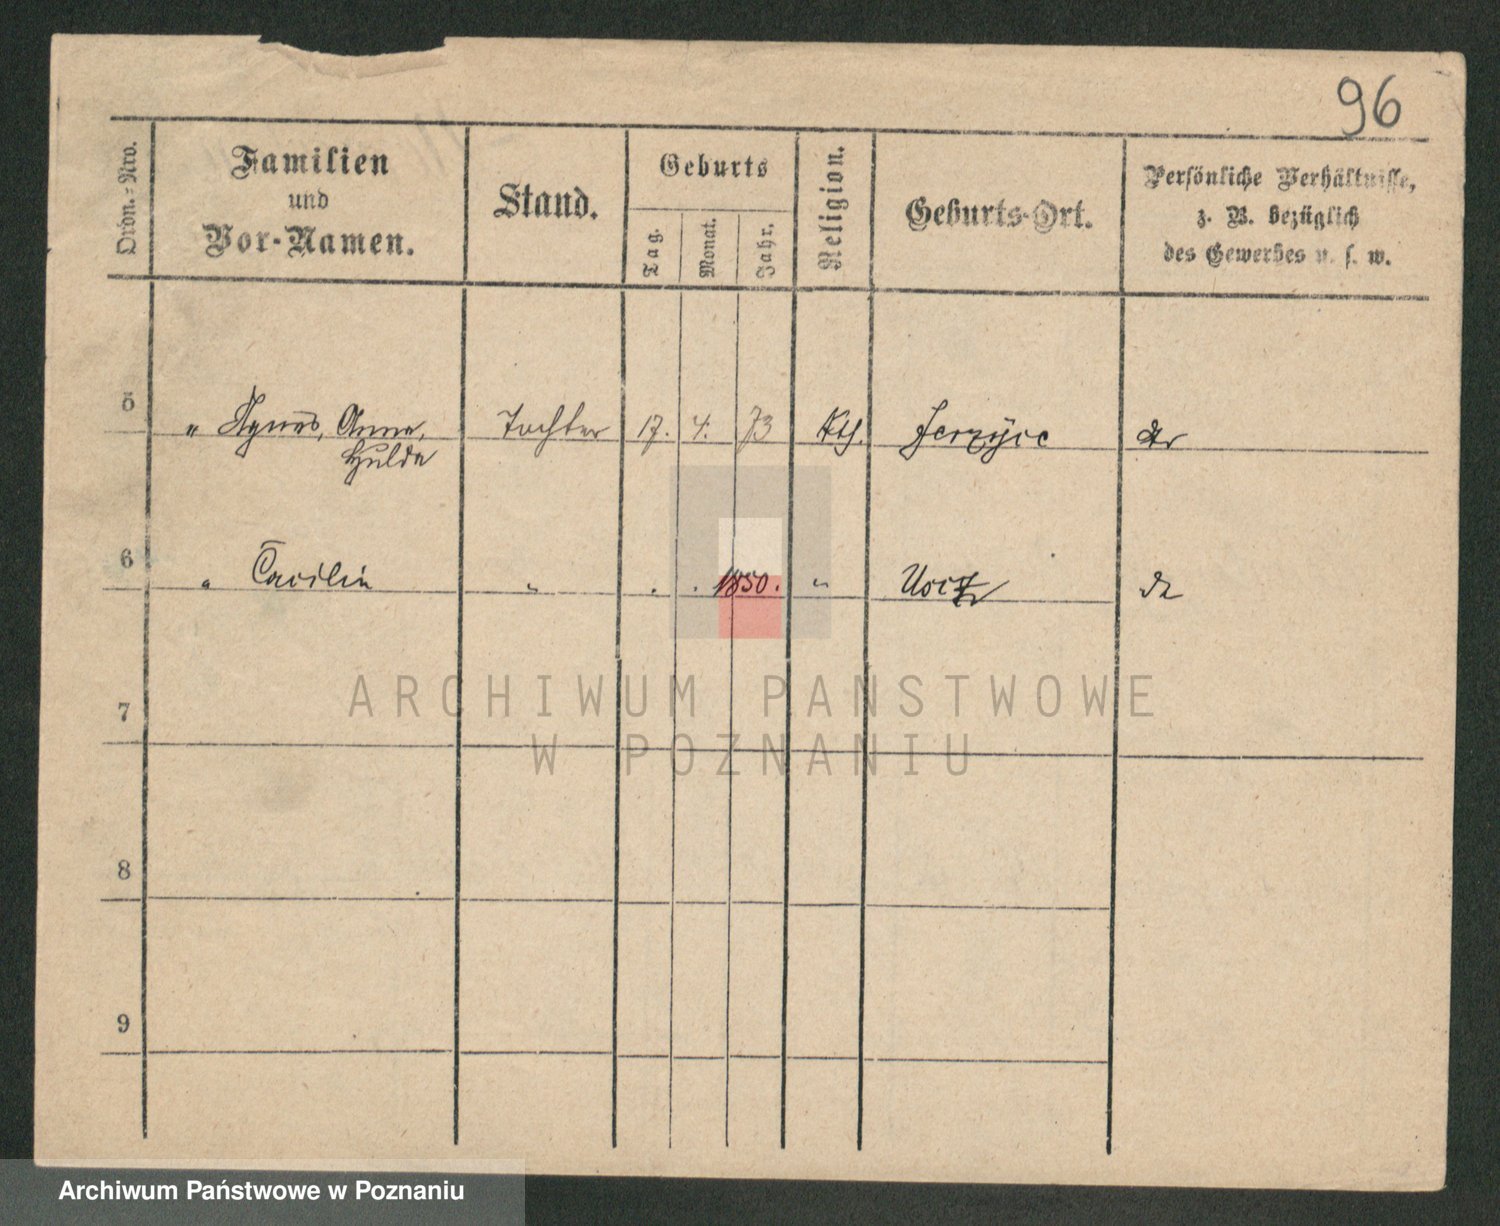 96
Ordn.=Nro.
Familien
und
Vor-Namen.
Stand.
Geburts
Tag.
Monat.
Jahr.
Religion.
Geburts-Ort.
Persönliche Verhältnisse,
z. B. bezüglich
des Gewerbes u. s. w.
5 " Agnes, Anna, Tochter 17. 4. 73 Kth. Jerzyce
Hulda
6 " Cacilia " . . 1850. "
7
8
9
ARCHIWUM PAŃSTWOWE
W POZNANIU
Archiwum Państwowe w Poznaniu